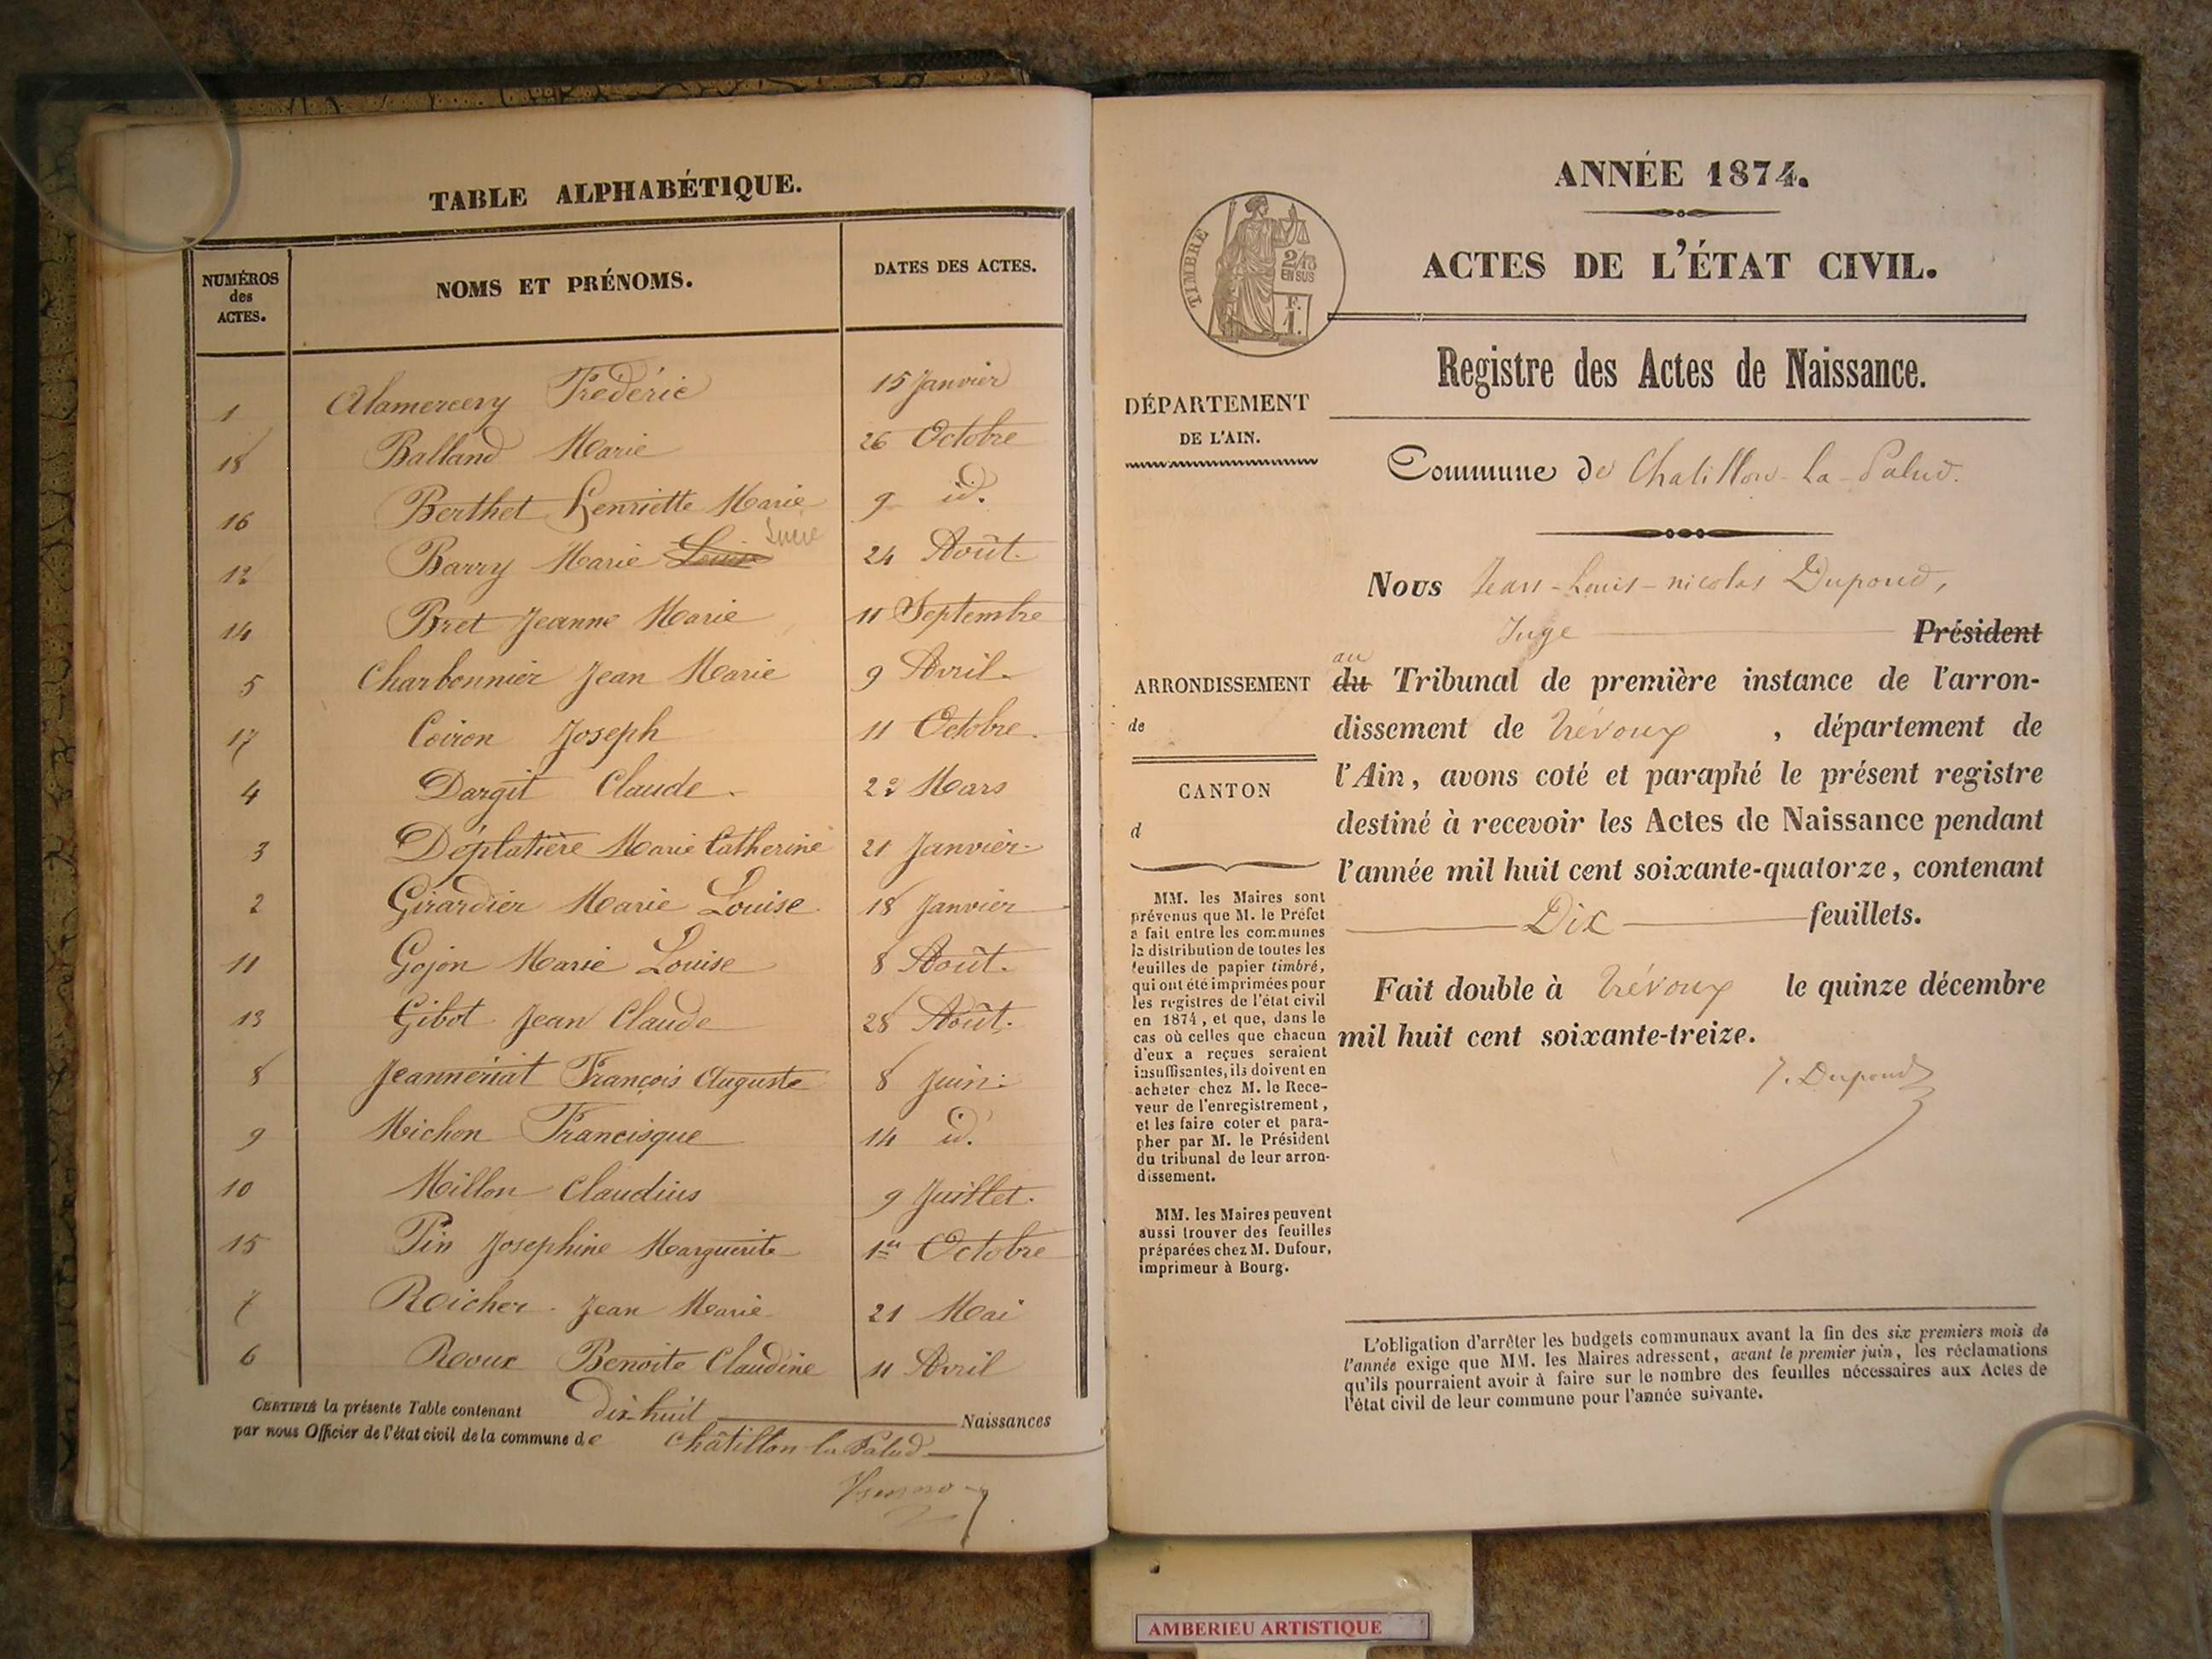 TABLE ALPHABÉTIQUE.
NUMÉROS des ACTES. NOMS ET PRÉNOMS. DATES DES ACTES.
1 Alamercery Frédéric 15 Janvier
18 Balland Marie 26 Octobre
16 Berthet Henriette Marie 9 id.
Lucie
12 Barry Marie Louise 24 Août.
14 Bret Jeanne Marie 11 Septembre
5 Charbonnier Jean Marie 9 Avril.
17 Coiron Joseph 11 Octobre.
4 Dargit Claude. Mars
3 Déplatière Marie Catherine 21 Janvier.
2 Girardier Marie Louise. 18 Janvier
11 Gojon Marie Louise 8 Août.
13 Gibot Jean Claude 28 Août.
8 Jeannériat François Auguste 8 Juin.
9 Michon Francisque 14 id.
10 Millon Claudius 9 Juillet.
15 Pin Josephine Marguerite 1er Octobre
7 Roicher. Jean Marie 21 Mai
6 Roux Benoite Claudine 11 Avril
CERTIFIÉ la présente Table contenant dix huit Naissances
par nous Officier de l'état civil de la commune de Châtillon la Palud
ANNÉE 1874.
ACTES DE L'ÉTAT CIVIL.
TIMBRE
2/10
EN SUS
F.
1.
Registre des Actes de Naissance.
DÉPARTEMENT
DE L'AIN.
Commune de Chatillon-La-Palud.
Nous Jean-Louis-nicolas Dupond,
Juge Président
au
ARRONDISSEMENT
de
CANTON
d
du Tribunal de première instance de l'arron-
dissement de Trévoux , département de
l'Ain, avons coté et paraphé le présent registre
destiné à recevoir les Actes de Naissance pendant
l'année mil huit cent soixante-quatorze, contenant
Dix feuillets.
Fait double à Trévoux le quinze décembre
mil huit cent soixante-treize.
J. Dupond
MM. les Maires sont
prévenus que M. le Préfet
a fait entre les communes
la distribution de toutes les
feuilles de papier timbré,
qui ont été imprimées pour
les registres de l'état civil
en 1874, et que, dans le
cas où celles que chacun
d'eux a reçues seraient
insuffisantes, ils doivent en
acheter chez M. le Rece-
veur de l'enregistrement,
et les faire coter et para-
pher par M. le Président
du tribunal de leur arron-
dissement.
MM. les Maires peuvent
aussi trouver des feuilles
préparées chez M. Dufour,
imprimeur à Bourg.
L'obligation d'arrêter les budgets communaux avant la fin des six premiers mois de
l'année exige que MM. les Maires adressent, avant le premier juin, les réclamations
qu'ils pourraient avoir à faire sur le nombre des feuilles nécessaires aux Actes de
l'état civil de leur commune pour l'année suivante.
AMBERIEU ARTISTIQUE